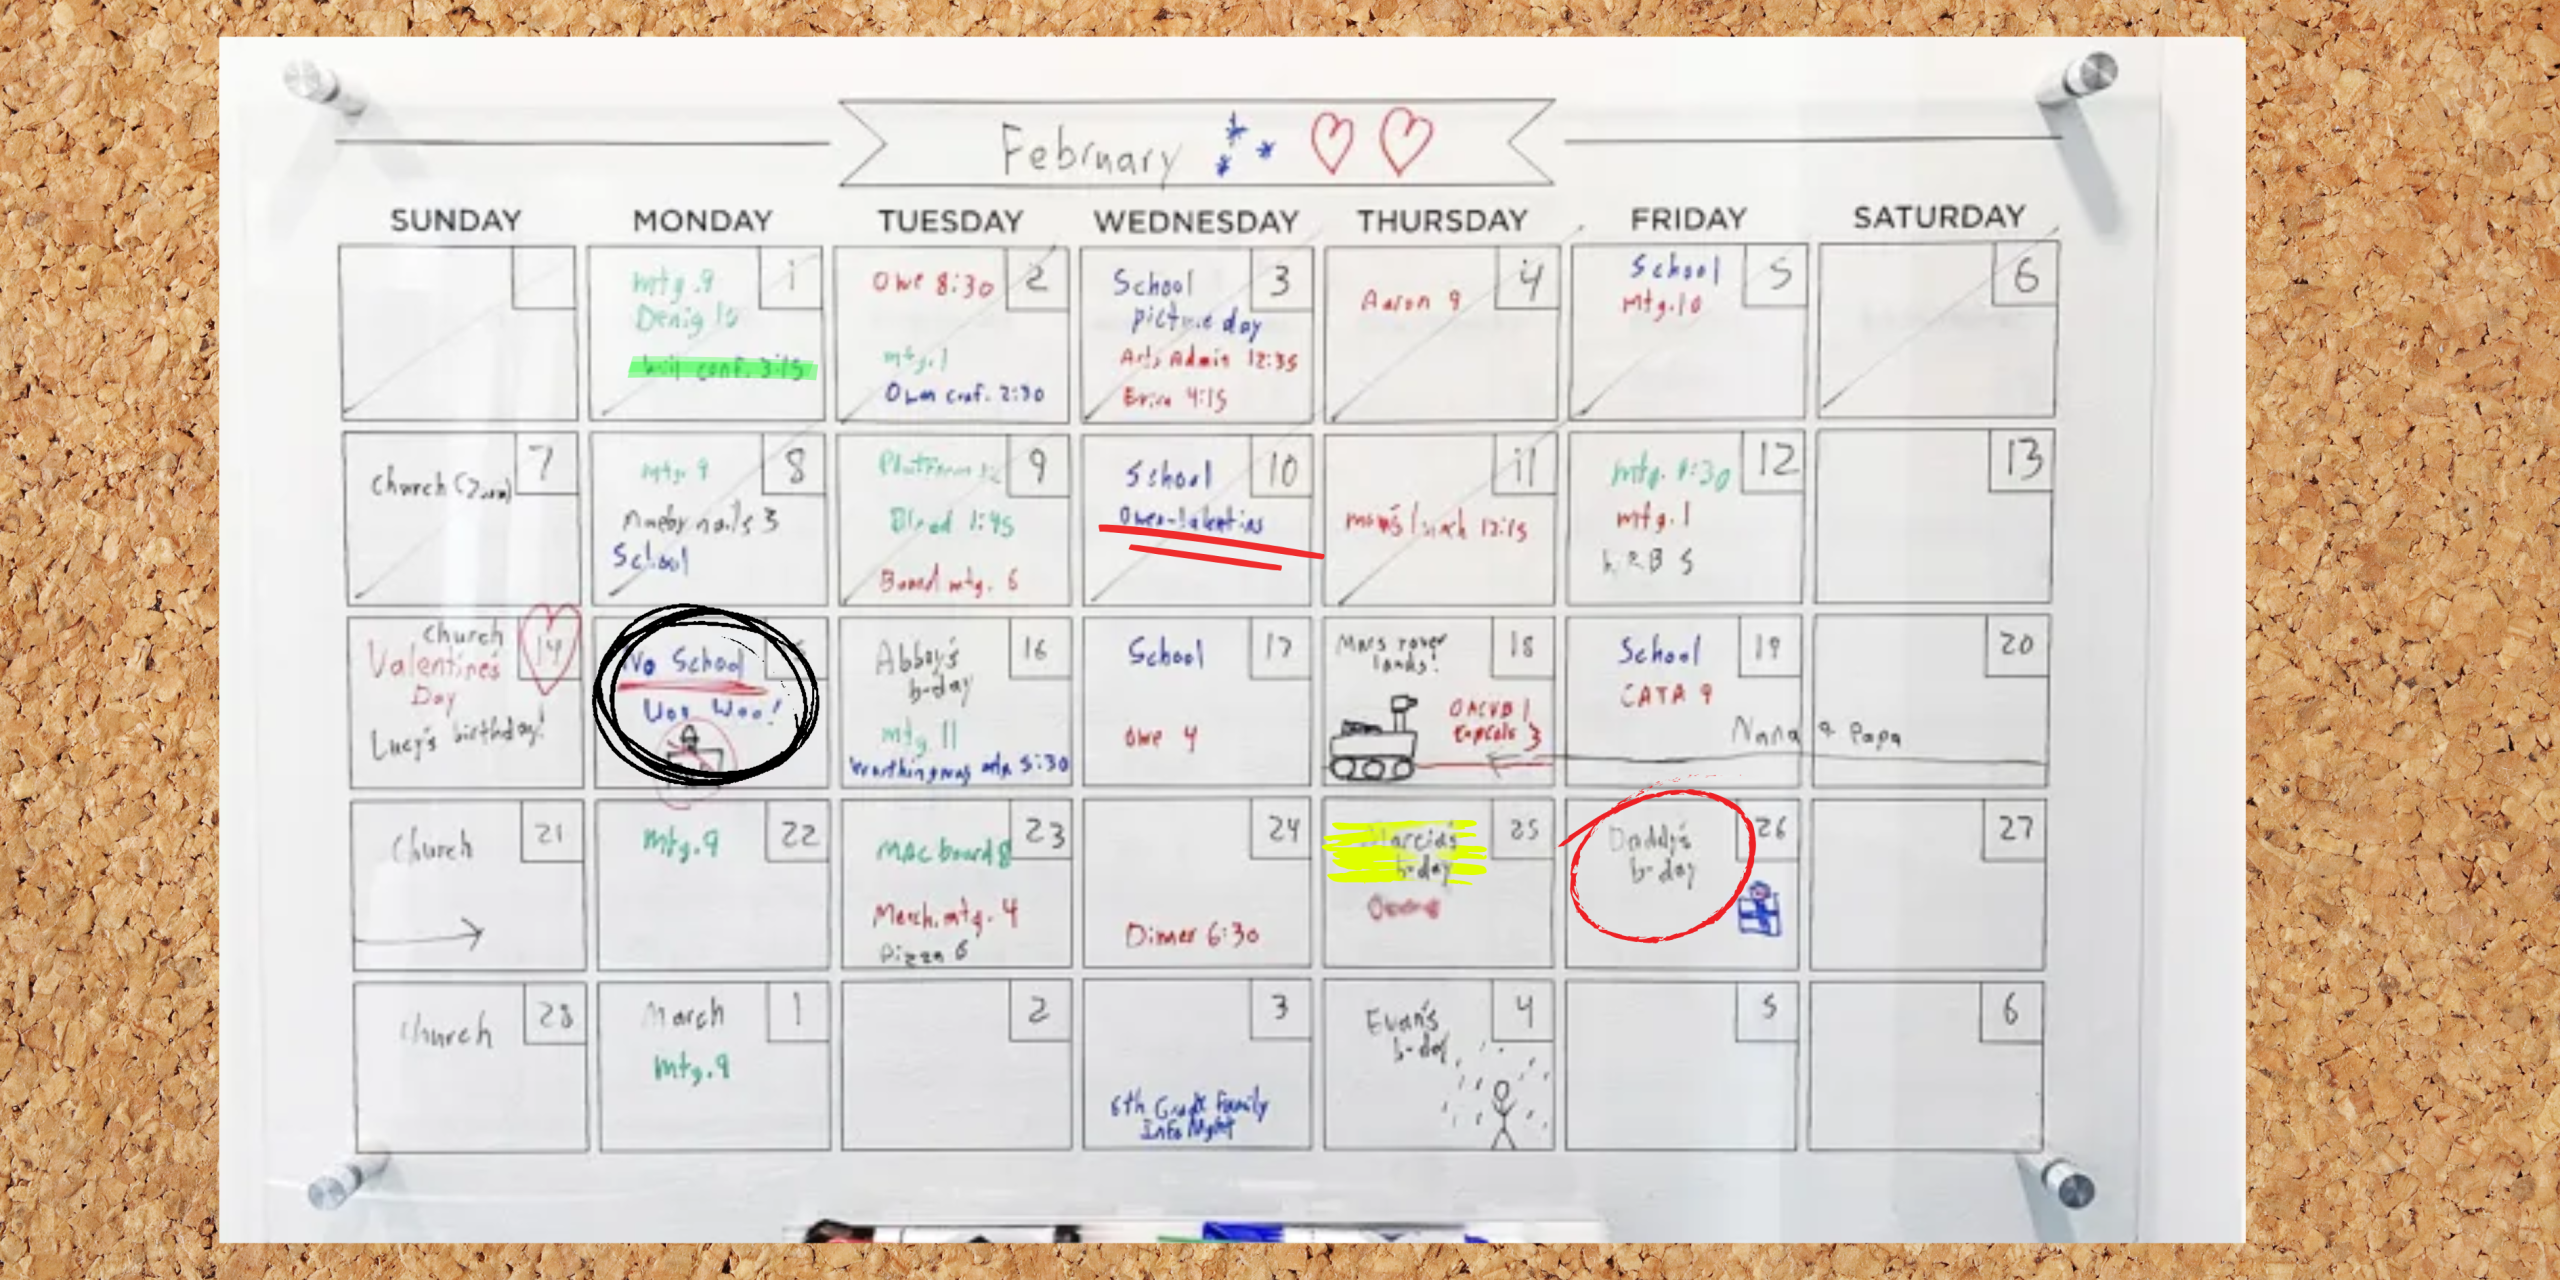 February
SUNDAY MONDAY TUESDAY WEDNESDAY THURSDAY FRIDAY SATURDAY
1
mtg. 9
Denig 10
conf. 3:15
2
Owe 8:30
mtg. 1
Owen conf. 2:30
3
School
picture day
Arts Admin 12:35
Erica 4:15
4
Aaron 9
5
School
mtg. 10
6
7
Church (Zoom)
8
mtg. 9
nails 3
School
9
Blood 1:45
Board mtg. 6
10
School
11
mom's lunch 12:15
12
mtg. 9:30
mtg. 1
5
13
14
Church
Valentine's
Day
Lucy's birthday!
No School
Woo!
16
Abbey's
b-day
mtg 11
mtg 5:30
17
School
Owe 4
18
Mars rover
lands!
3
19
School
CATA 9
20
Nana & Papa
21
Church
22
mtg. 9
23
MAC board 8
Merch. mtg. 4
Pizza 6
24
Dinner 6:30
25
Marcia's
b-day
26
Daddy's
b-day
27
28
Church
1
March
mtg. 9
2
3
6th Grade Family
Info Night
4
Evan's
b-day
5
6